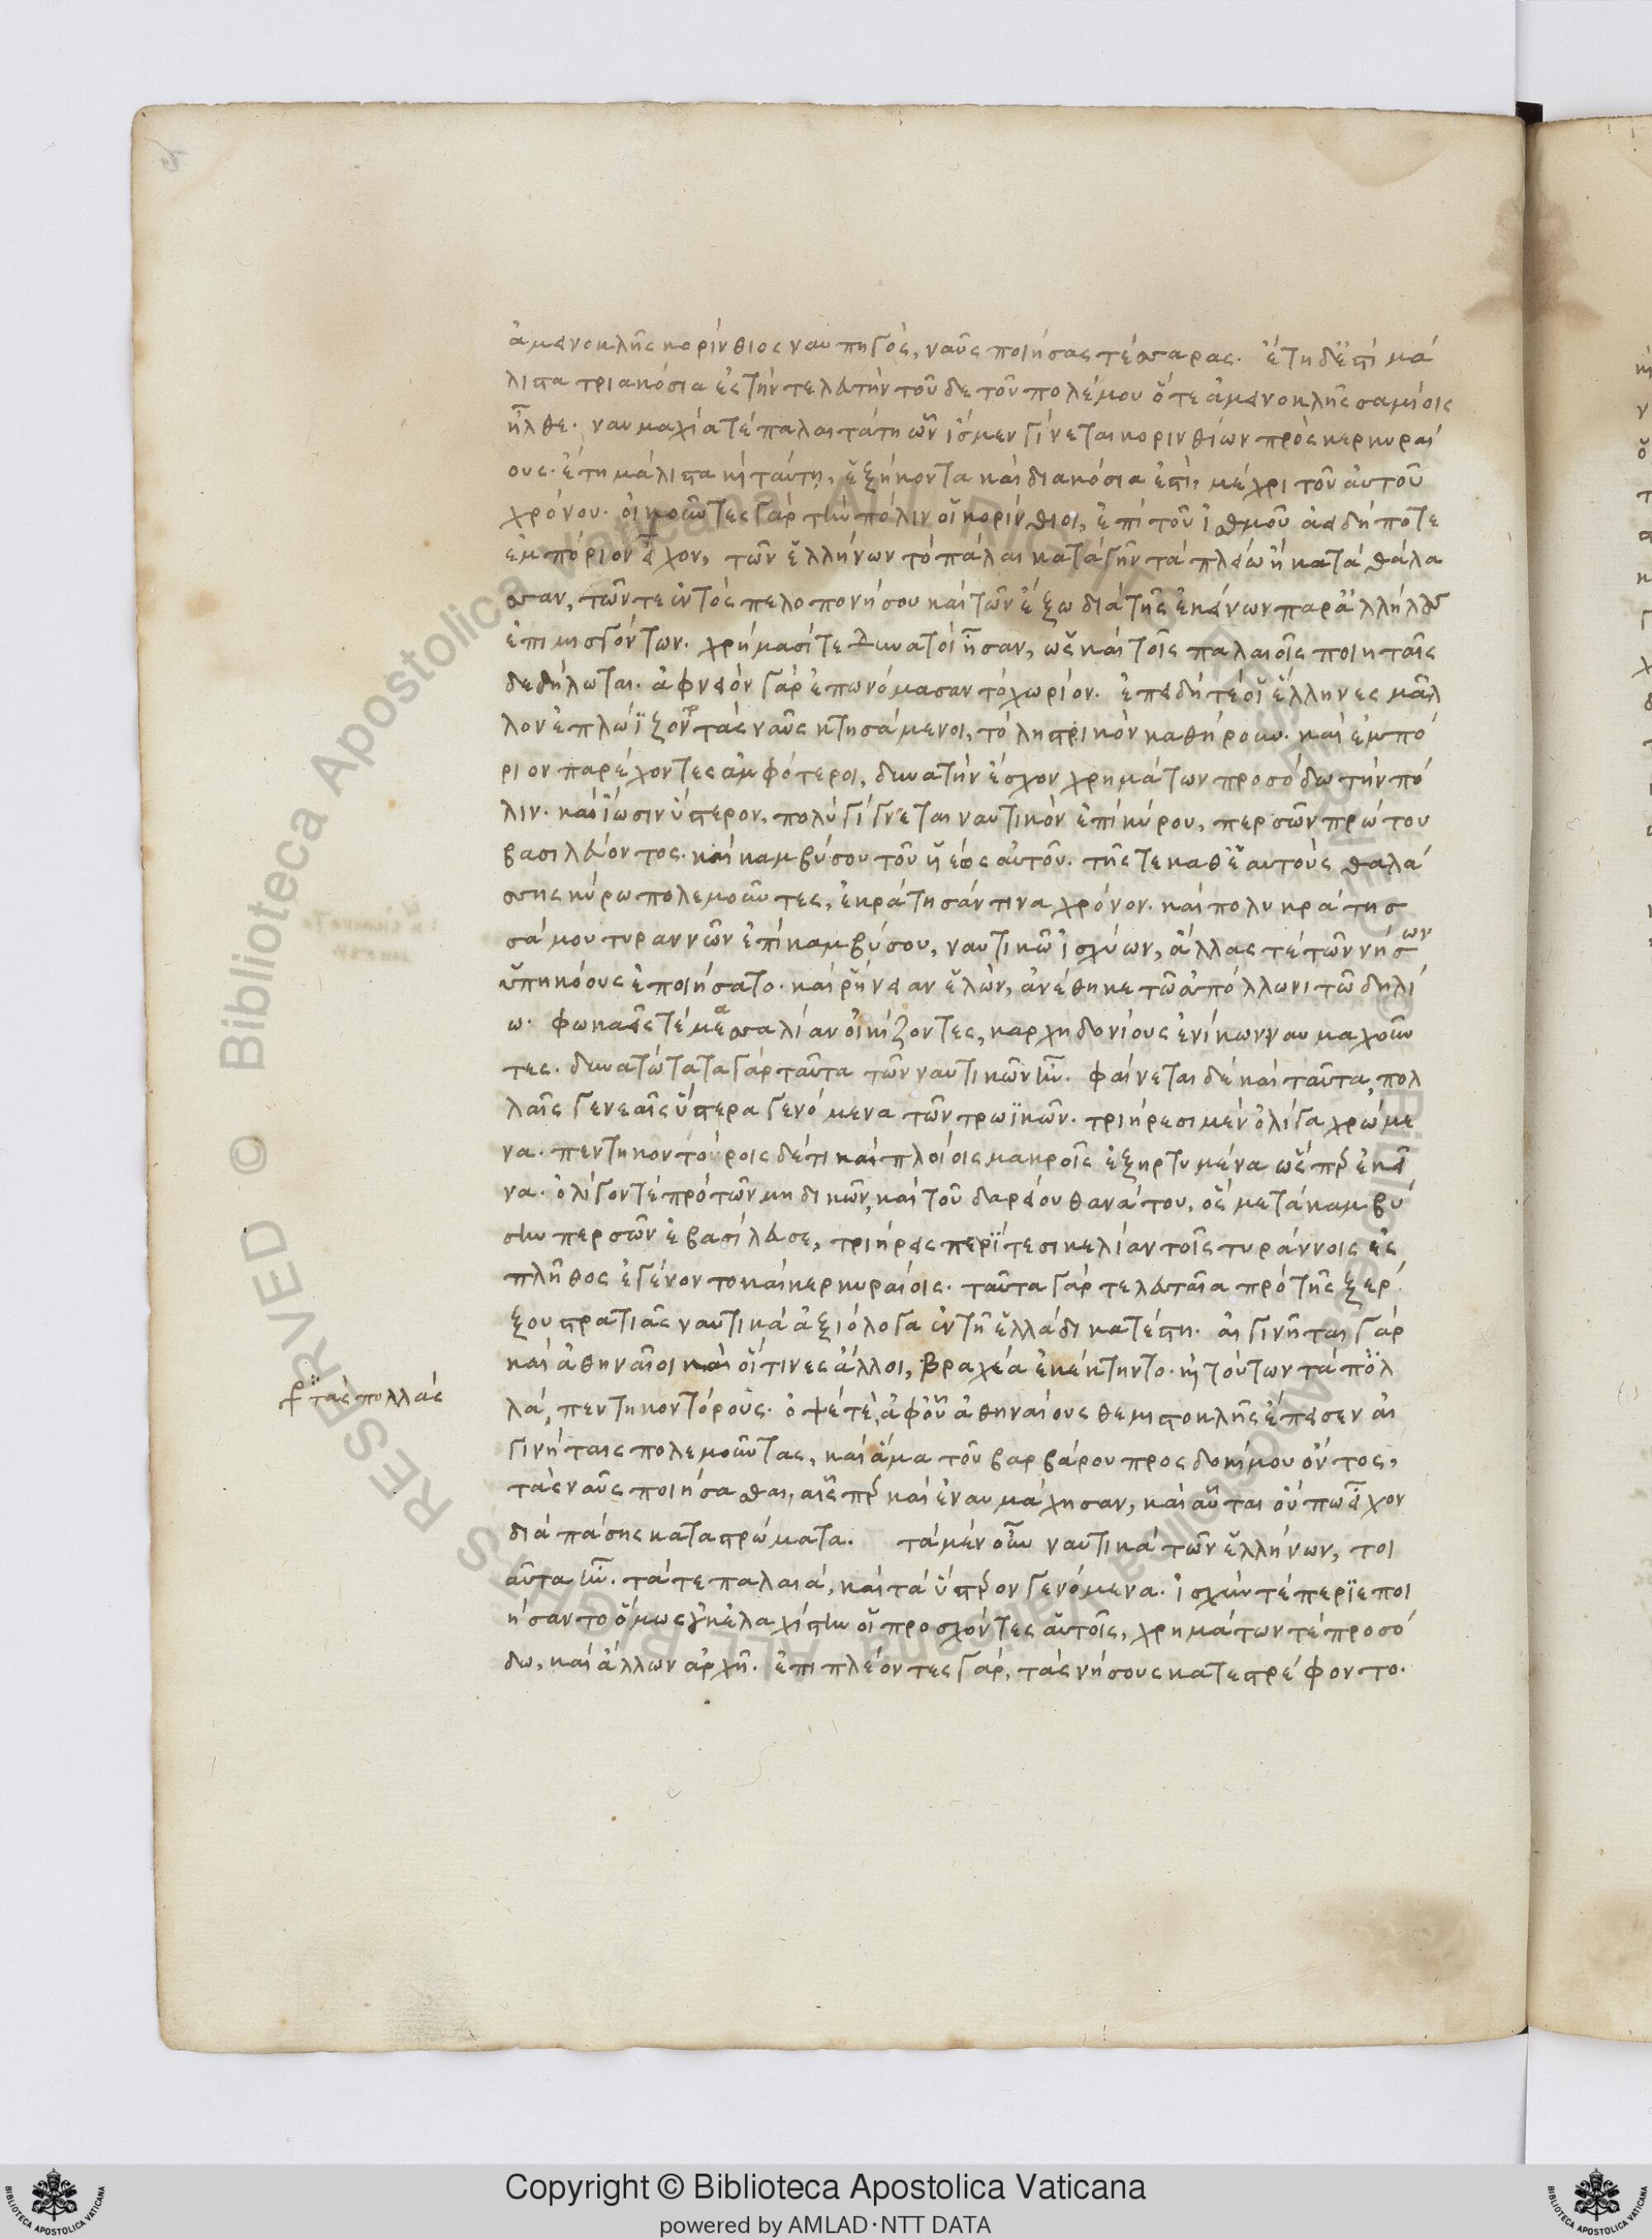 ἀμεινοκλῆς κορίνθιος ναυπηγὸς, ναῦς ποιήσας τέσσαρας. ἔτη δ' ἐστὶ μά
λιστα τριακόσια ἐς τὴν τελευτὴν τοῦδε τοῦ πολέμου ὅτε ἀμεινοκλῆς σαμίοις
ἦλθε. ναυμαχία τὲ παλαιτάτη ὧν ἴσμεν γίνεται κορινθίων πρὸς κερκυραί
ους. ἔτη μάλιστα κ(αὶ) ταύτη, ἑξήκοντα καὶ διακόσια ἐστὶ, μέχρι τοῦ αὐτοῦ
χρόνου. οἰκοῦντες γὰρ τὴν πόλιν οἱ κορίνθιοι, ἐπὶ τοῦ ἰσθμοῦ ἀεὶ δήποτε
ἐμπόριον εἶχον, τῶν ἑλλήνων τὸ πάλαι κατὰ γῆν τὰ πλείω ἢ κατὰ θάλα
σσαν, τῶν τε ἐντὸς πελοπονήσου καὶ τῶν ἔξω διὰ τῆς ἐκείνων παρ' ἀλλήλους
ἐπιμισγόντων. χρήμασί τε δυνατοὶ ἦσαν, ὡς καὶ τοῖς παλαιοῖς ποιηταῖς
δεδήλωται. ἀφνειὸν γὰρ ἐπωνόμασαν τὸ χωρίον. ἐπειδή τὲ οἱ ἕλληνες μᾶλ
λον ἐπλώϊζον τὰς ναῦς κτησάμενοι, τὸ ληστρικὸν καθήρουν. καὶ ἐμπό
ριον παρέχοντες ἀμφότεροι, δυνατὴν ἔσχον χρημάτων προσόδω τὴν πό
λιν. καὶ ἴωσιν ὕστερον, πολὺ γίγνεται ναυτικὸν ἐπὶ κύρου, περσῶν πρώτου
βασιλεύοντος. καὶ καμβύσου τοῦ ὑέος αὐτοῦ. τῆς τε καθ' ἑαυτοὺς θαλά
σσης κύρω πολεμοῦντες, ἐκράτησάν τινα χρόνον. καὶ πολυκράτης
σάμου τυραννῶν ἐπὶ καμβύσου, ναυτικῶ ἰσχύων, ἄλλας τὲ τῶν νήσων
ὑπηκόους ἐποιήσατο. καὶ ῥήνειαν ἑλὼν, ἀνέθηκε τῶ ἀπόλλωνι τῶ δηλί
ω. φωκαεῖς τὲ μασσαλίαν οἰκίζοντες, καρχηδονίους ἐνίκων ναυμαχοῦν
τες. δυνατώτατα γὰρ ταῦτα τῶν ναυτικῶν ἦν. φαίνεται δὲ καὶ ταῦτα, πολ
λαῖς γενεαῖς ὕστερα γενόμενα τῶν τρωϊκῶν. τριήρεσι μὲν ὀλίγα χρώμε
να. πεντηκοντόροις δ' ἔτι καὶ πλοίοις μακροῖς ἐξηρτυμένα ὥσπερ ἐκεῖ
να. ὀλίγον τὲ πρὸ τῶν μηδικῶν, καὶ τοῦ δαρείου θανάτου, ὃς μετὰ καμβύ
σην περσῶν ἐβασίλευσε, τριήρεις περί τε σικελίαν τοῖς τυράννοις ἐς
πλῆθος ἐγένοντο καὶ κερκυραίοις. ταῦτα γὰρ τελευταῖα πρὸ τῆς ξέρ
ξου στρατιᾶς ναυτικὰ ἀξιόλογα ἐν τῆ ἑλλάδι κατέστη. αἰγινῆται γὰρ
καὶ ἀθηναῖοι καὶ οἵτινες ἄλλοι, βραχέα ἐκέκτηντο. κ(αὶ) τούτων τὰ πολ
γρ τὰς πολλὰς
λὰ, πεντηκοντόρους. ὀψέ τὲ, ἀφ' οὗ ἀθηναίους θεμιστοκλῆς ἔπεισεν αἰ
γινήταις πολεμοῦντας, καὶ ἅμα τοῦ βαρβάρου προσδοκίμου ὄντος,
τὰς ναῦς ποιήσασθαι, αἷσπερ καὶ ἐναυμάχησαν, καὶ αὗται οὔπω εἶχον
διὰ πάσης καταστρώματα. τὰ μὲν οὖν ναυτικὰ τῶν ἑλλήνων, τοι
αῦτα ἦν. τά τε παλαιὰ, καὶ τὰ ὕστερον γενόμενα. ἰσχὺν τὲ περιεποι
ήσαντο ὅμως οὐκ ἐλαχίστην οἱ προσχόντες αὐτοῖς, χρημάτων τὲ προσό
δω, καὶ ἄλλων ἀρχῆ. ἐπιπλέοντες γὰρ, τὰς νήσους κατεστρέφοντο.
Biblioteca Apostolica Vaticana ALL RIGHTS RESERVED ©
Copyright © Biblioteca Apostolica Vaticana
powered by AMLAD·NTT DATA
BIBLIOTECA APOSTOLICA VATICANA
BIBLIOTECA APOSTOLICA VATICANA